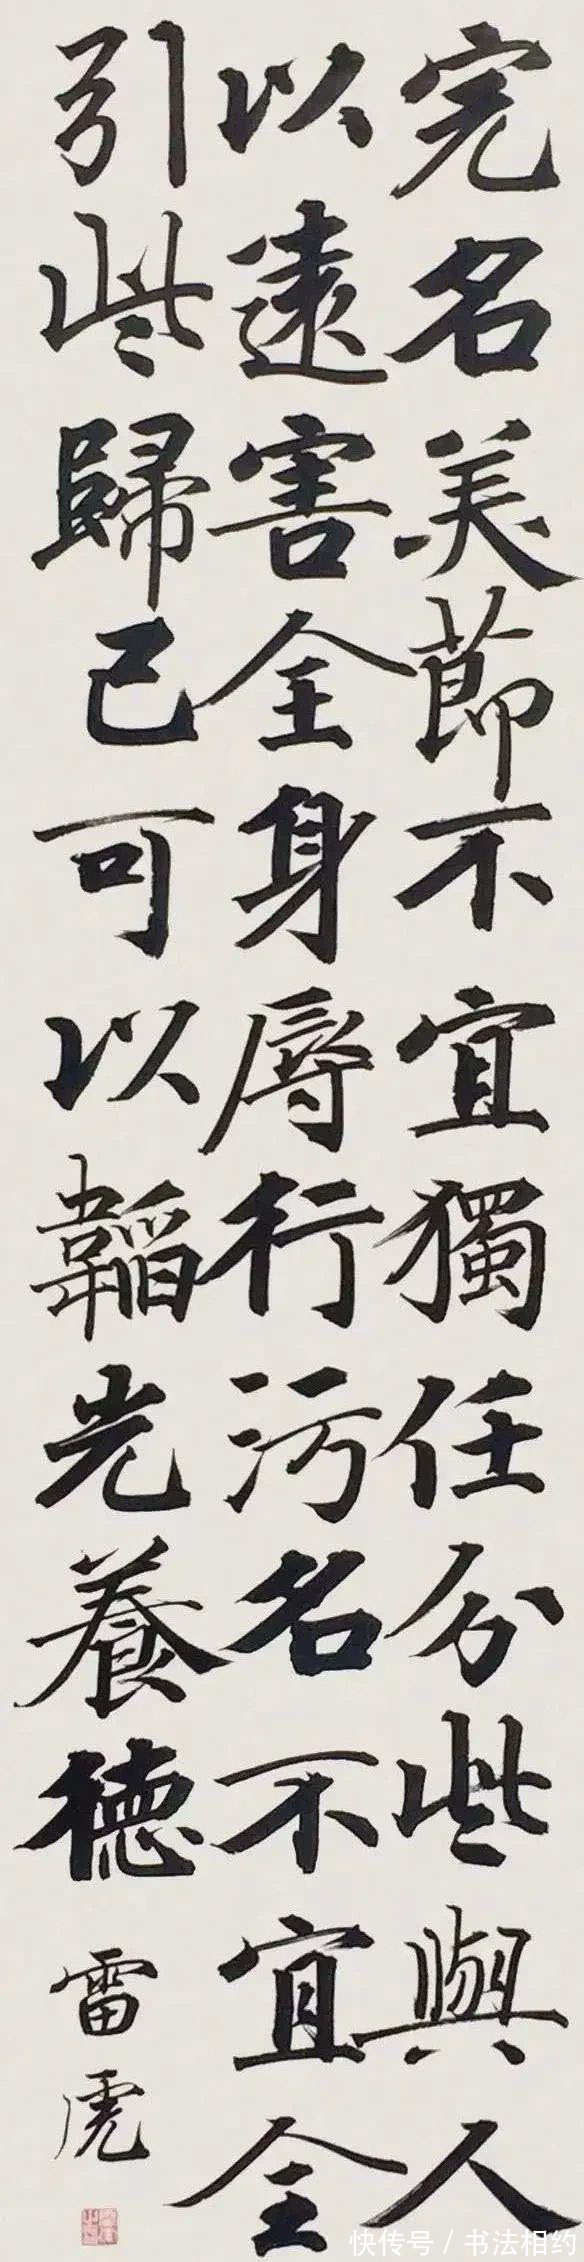 完名美節不宜獨任分些與人
以遠害全身辱行污名不宜全
引些歸己可以韜光養德
雷虎
快传号 / 书法相约